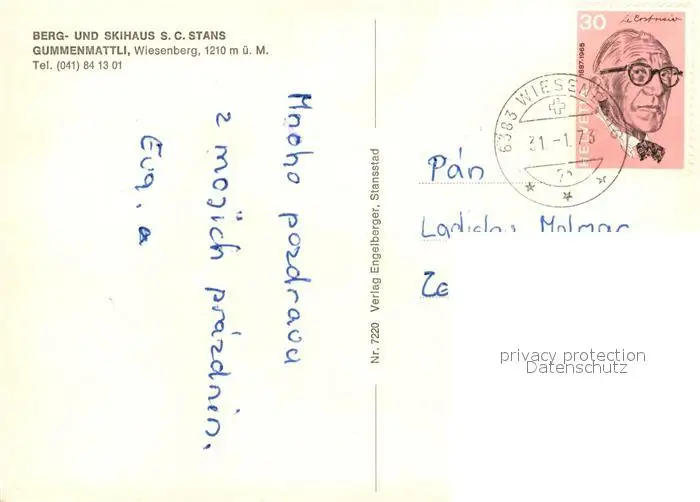 BERG- UND SKIHAUS S. C. STANS
GUMMENMATTLI, Wiesenberg, 1210 m ü. M.
Tel. (041) 84 13 01
Mnoho pozdravu
z mojich prázdnin.
Eva. a
Nr. 7220 Verlag Engelberger, Stansstad
30
Le Corbusier
1887-1965
HELVETIA
6383 WIESEN
31.-1.73
Pán
Ladislav
privacy protection
Datenschutz